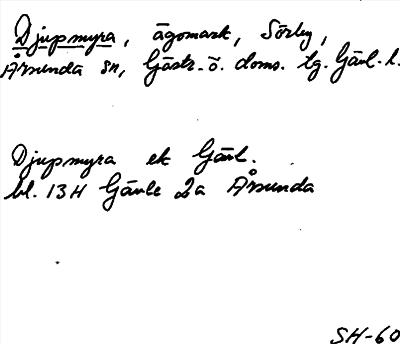 Djupmyra, ägomark, Sörby,
Årsunda sn, Gästr.-ö. doms. tg. Gävl. l.
Djupmyra ek Gävl.
bl. 13H Gävle 2a Årsunda
SH-60